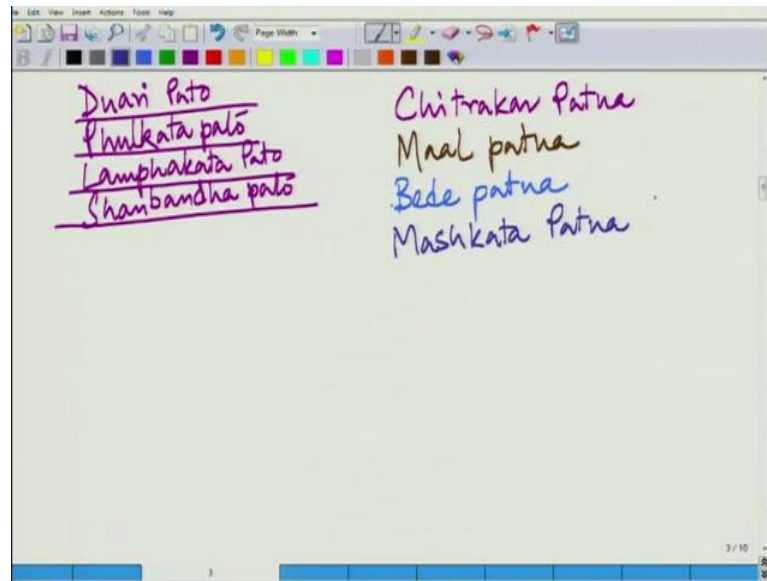 Edit View Insert Actions Tools Help
Page Width
Duari Pato
Phulkata pató
Lamphakata Pato
Shanbandha pató
Chitrakar Patua
Maal patua
Bede patua
Mashkata Patua
3 / 10
3